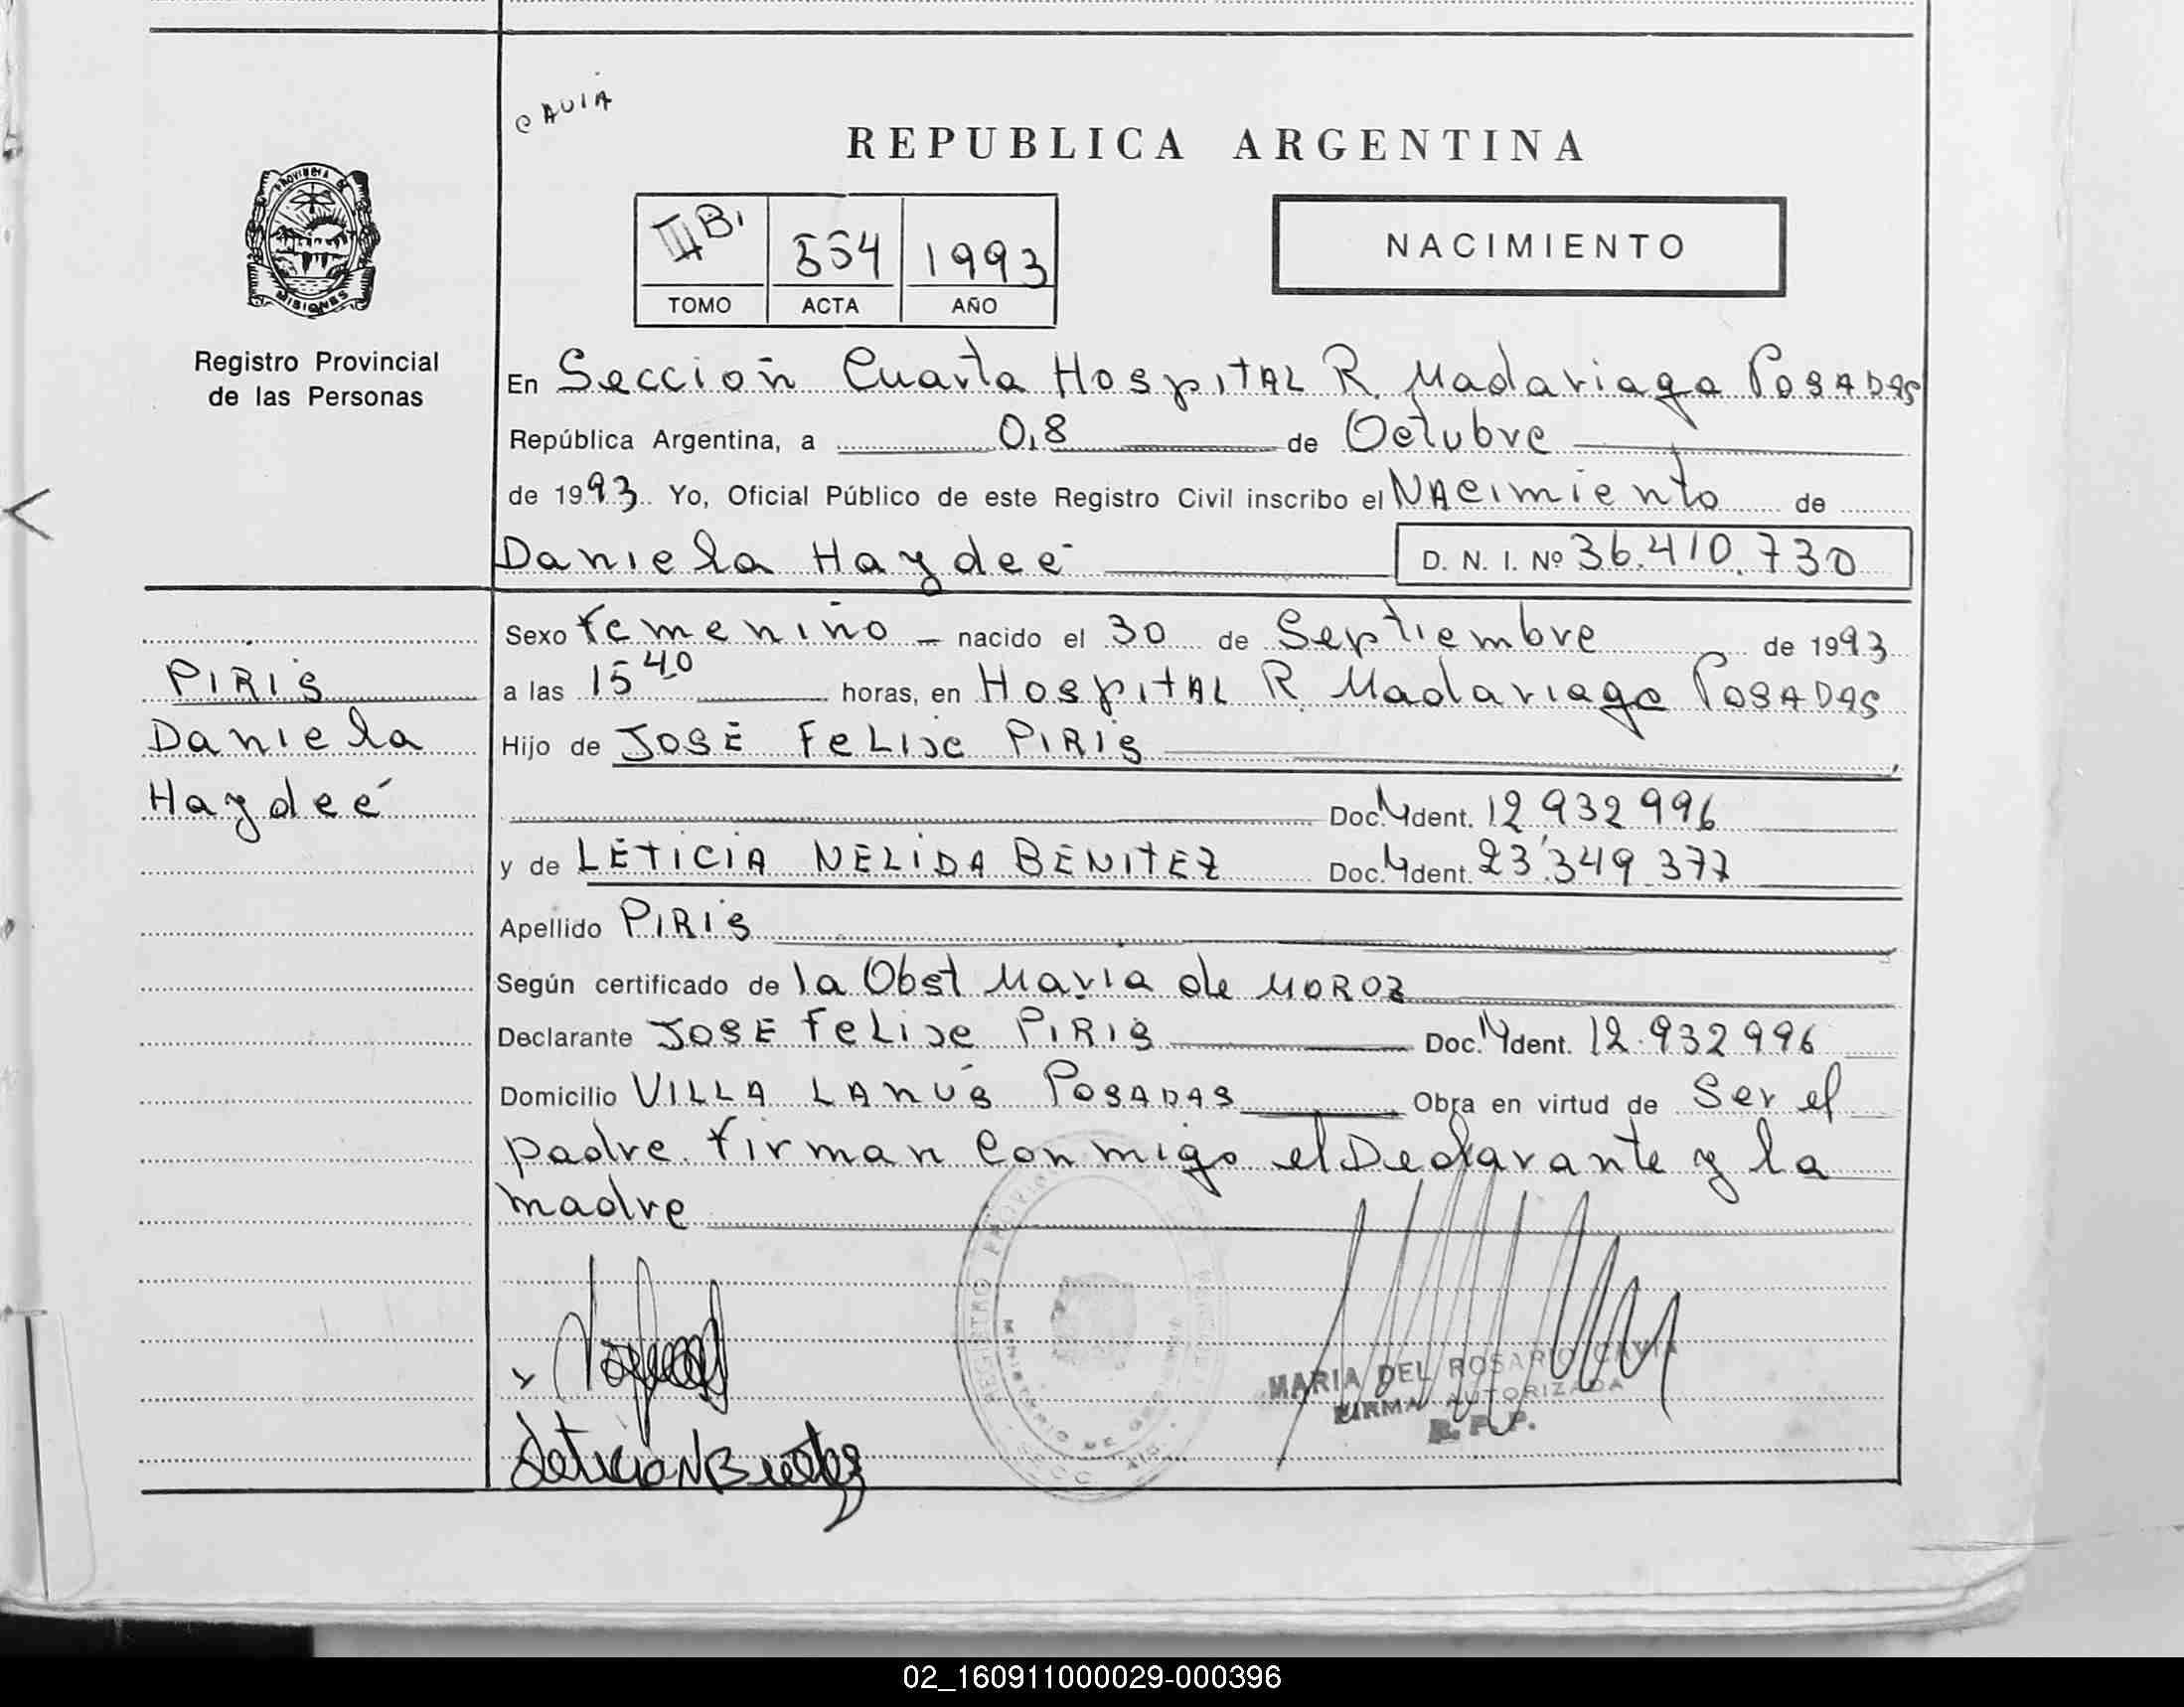 CAVIA
REPUBLICA ARGENTINA
PROVINCIA DE
MISIONES
III B.
554
1993
TOMO
ACTA
AÑO
NACIMIENTO
Registro Provincial
de las Personas
En Sección Cuarta Hospital R. Madariaga Posadas
República Argentina, a 08 de Octubre
de 1993. Yo, Oficial Público de este Registro Civil inscribo el Nacimiento de
Daniela Haydeé D. N. I. Nº 36.410.730
Sexo femenino nacido el 30 de Septiembre de 1993
a las 15 40 horas, en Hospital R. Madariaga Posadas
Hijo de JOSÉ FELISE PIRIS
Doc. Ident. 12 932 996
y de LETICIA NELIDA BENITEZ Doc. Ident. 23.349 377
Apellido PIRIS
Según certificado de la Obst Maria de MOROZ
Declarante JOSE FELISE PIRIS Doc. Ident. 12.932 996
Domicilio VILLA LANÚS POSADAS Obra en virtud de Ser el
padre. firman conmigo el Declarante y la
madre
PIRIS
Daniela
Haydeé
REGISTRO PROVINCIAL
MINISTERIO DE GOBIERNO
SECC.
MARIA DEL ROSARIO CAVIA
FIRMA AUTORIZADA
R. P. P.
Leticia N Benitez
02_160911000029-000396